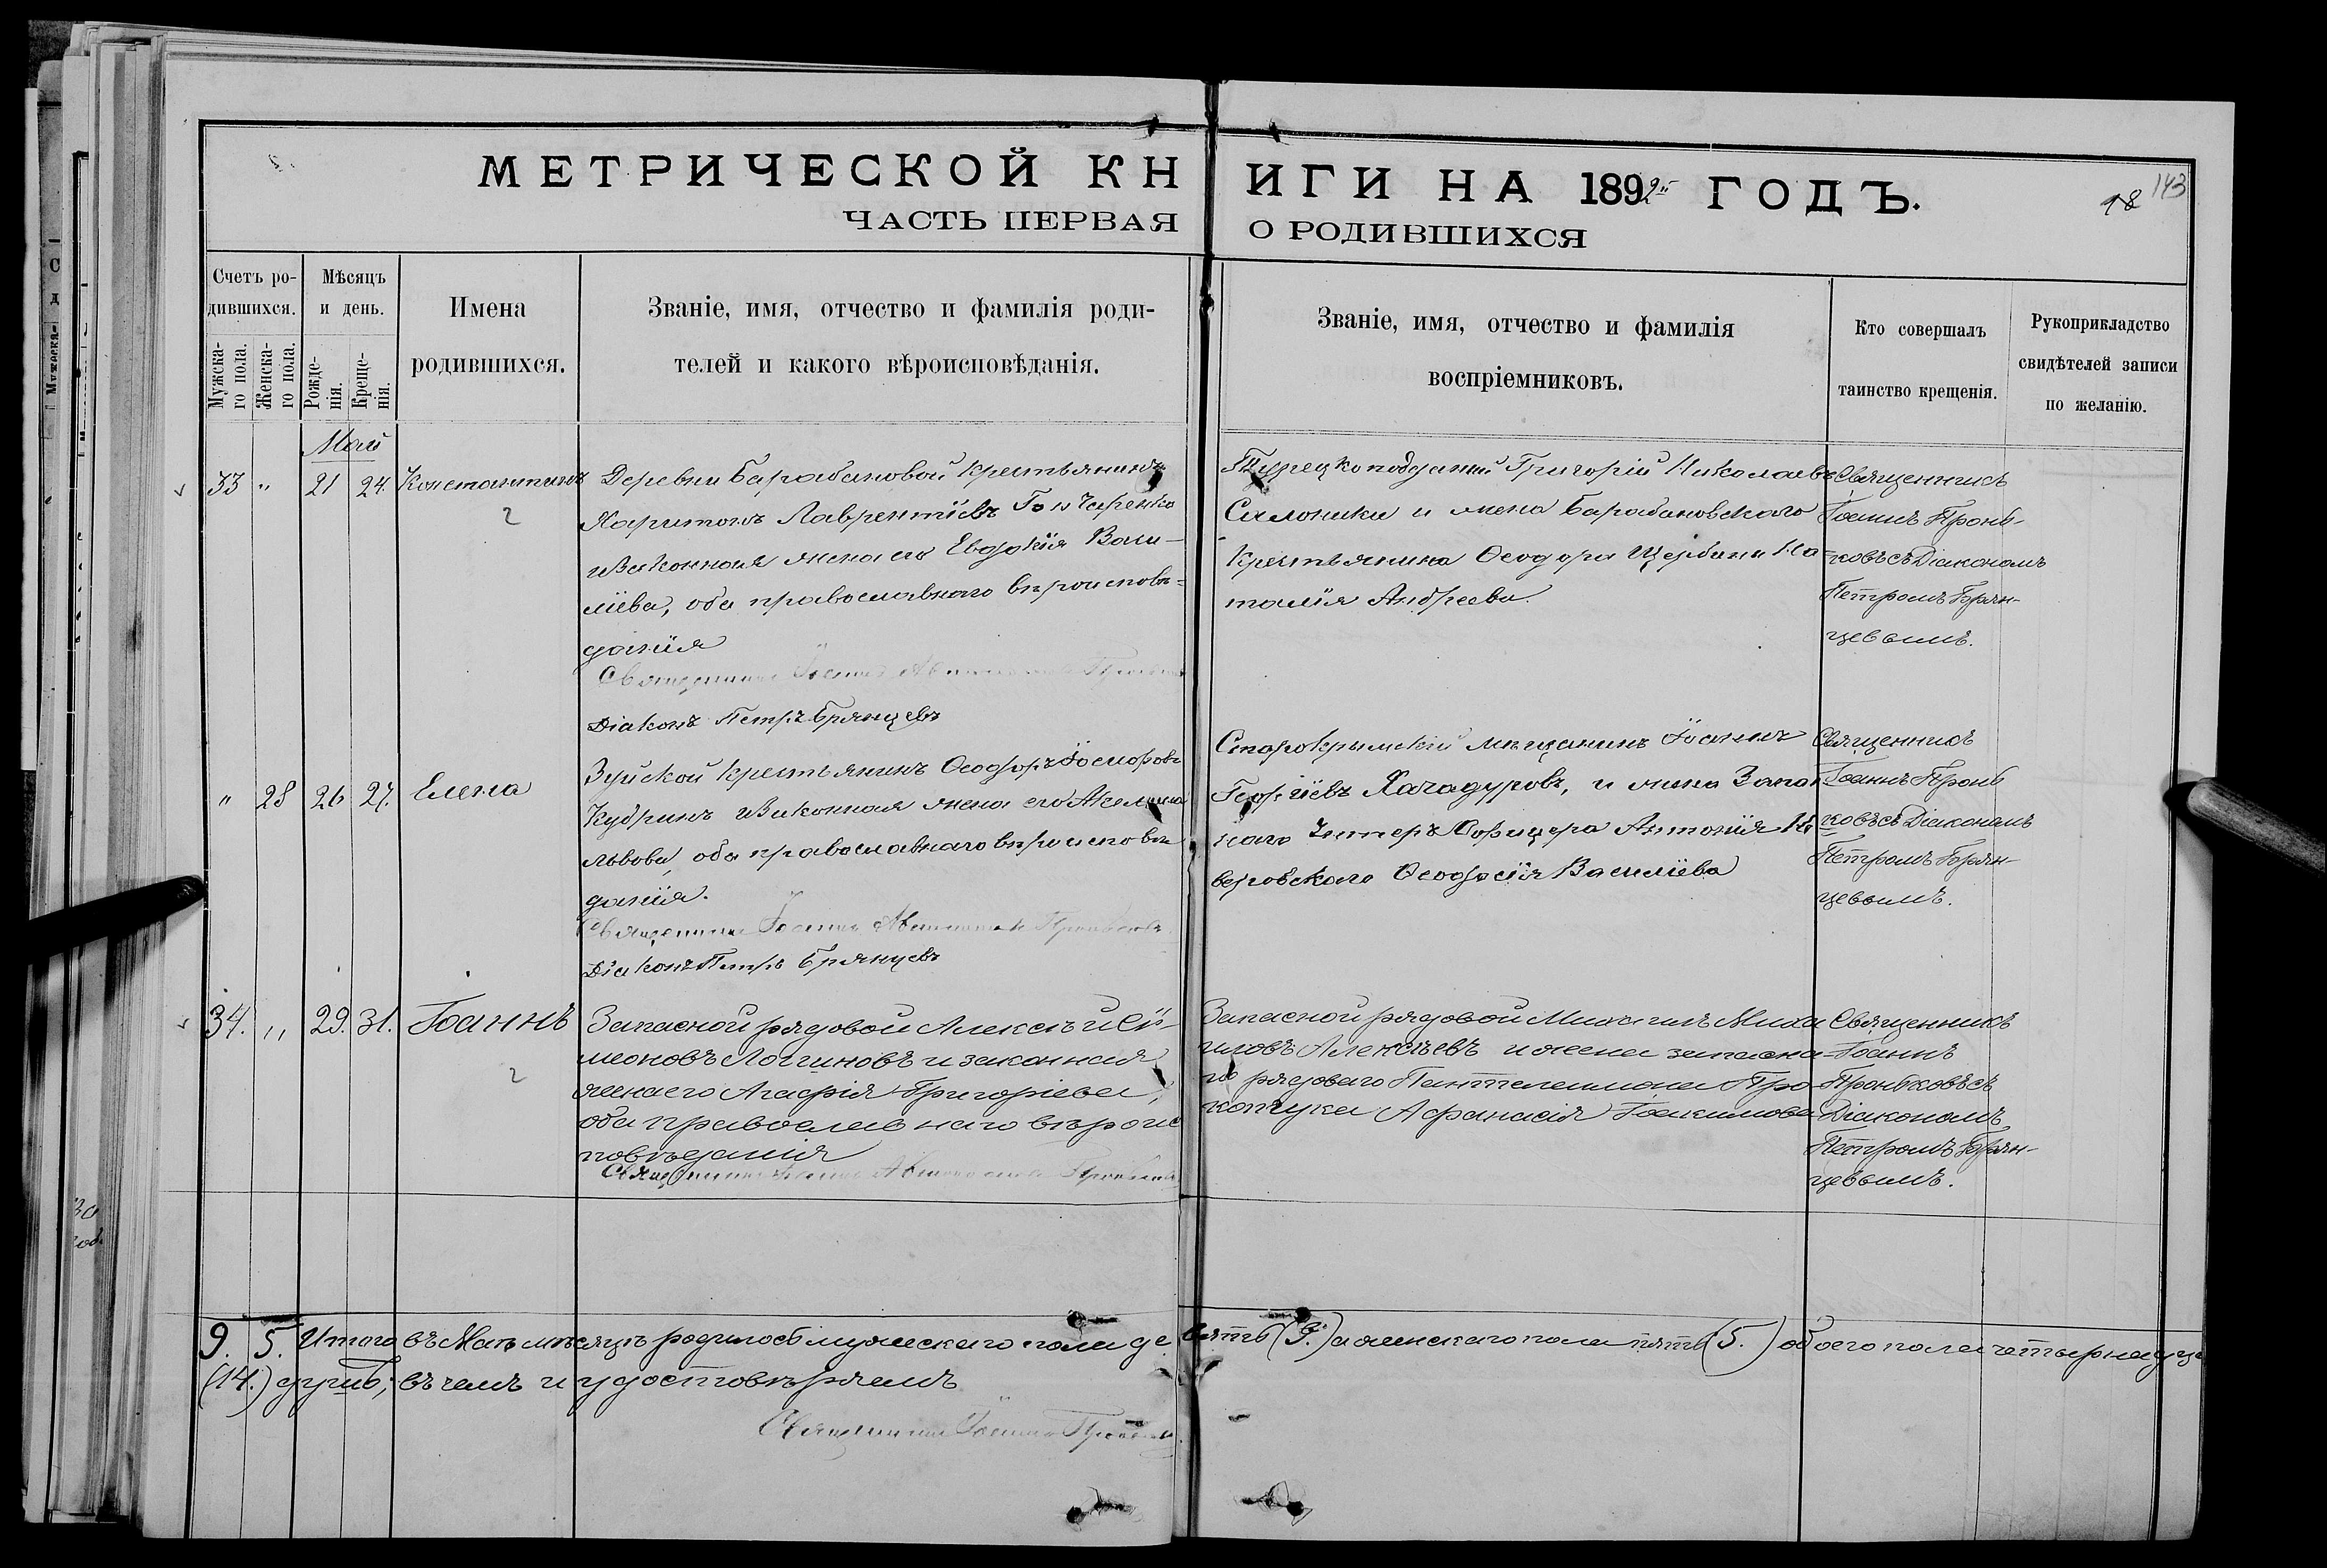 МЕТРИЧЕСКОЙ КНИГИ НА 1892й ГОДЪ.
18 143
ЧАСТЬ ПЕРВАЯ О РОДИВШИХСЯ
Счетъ ро-
дившихся.
Мужска-
го пола.
Женска-
го пола.
Мѣсяцъ
и день.
Рожде-
нія.
Креще-
нія.
Имена
родившихся.
Званіе, имя, отчество и фамилія роди-
телей и какого вѣроисповѣданія.
Званіе, имя, отчество и фамилія
воспріемниковъ.
Кто совершалъ
таинство крещенія.
Рукоприкладство
свидѣтелей записи
по желанію.
Май
33 " 21 24. Константинъ
Деревни Барабановой крестьянинъ
Харитонъ Лаврентіевъ Гончаренко
и законная жена его Евдокія Васи-
ліева, оба православнаго вѣроисповѣ-
данія
Священникъ Іоаннъ
Діаконъ Петръ Брянцевъ
Турецкоподданный Григорій Николаевъ
Салоники и жена Барабановскаго
крестьянина Ѳеодора Щербины На-
талія Андреева
Священникъ
Іоаннъ Пронь-
ковъ съ Діакономъ
Петромъ Брян-
цевымъ.
" 28 26 27. Елена
Зуйской крестьянинъ Ѳеодоръ
Кудринъ и законная жена его Акелина
Львова, оба православнаго вѣроисповѣ
данія.
Священникъ Іоаннъ
Діаконъ Петръ Брянцевъ
Старокрымскій мѣщанинъ Іоаннъ
Георгіевъ Хачадуровъ, и жена Запас
наго Унтеръ Офицера Антонія
веровскаго Ѳеодосія Василіева
Священникъ
Іоаннъ Пронь
ковъ съ Діакономъ
Петромъ Брян-
цевымъ.
34. " 29. 31. Іоаннъ
Запасной рядовой Алексѣй Си-
меоновъ Логиновъ и законная
жена его Агафія Григоріева,
оба православнаго вѣроис
повѣданія
Священникъ Іоаннъ
Запасной рядовой Михаилъ Миха
иловъ Алексѣевъ и жена запасна-
го рядового Пантелеимона Про-
копчука Афанасія Іоакимова
Священникъ
Іоаннъ
Проньковъ съ
Діакономъ
Петромъ Брян-
цевымъ.
9. 5. Итого въ Маѣ мѣсяцѣ родилось мужескаго пола девять (9.) а женскаго пола пять (5.) обоего пола четырнадца
(14.) душъ; въ чемъ и удостовѣряемъ
Священникъ Іоаннъ